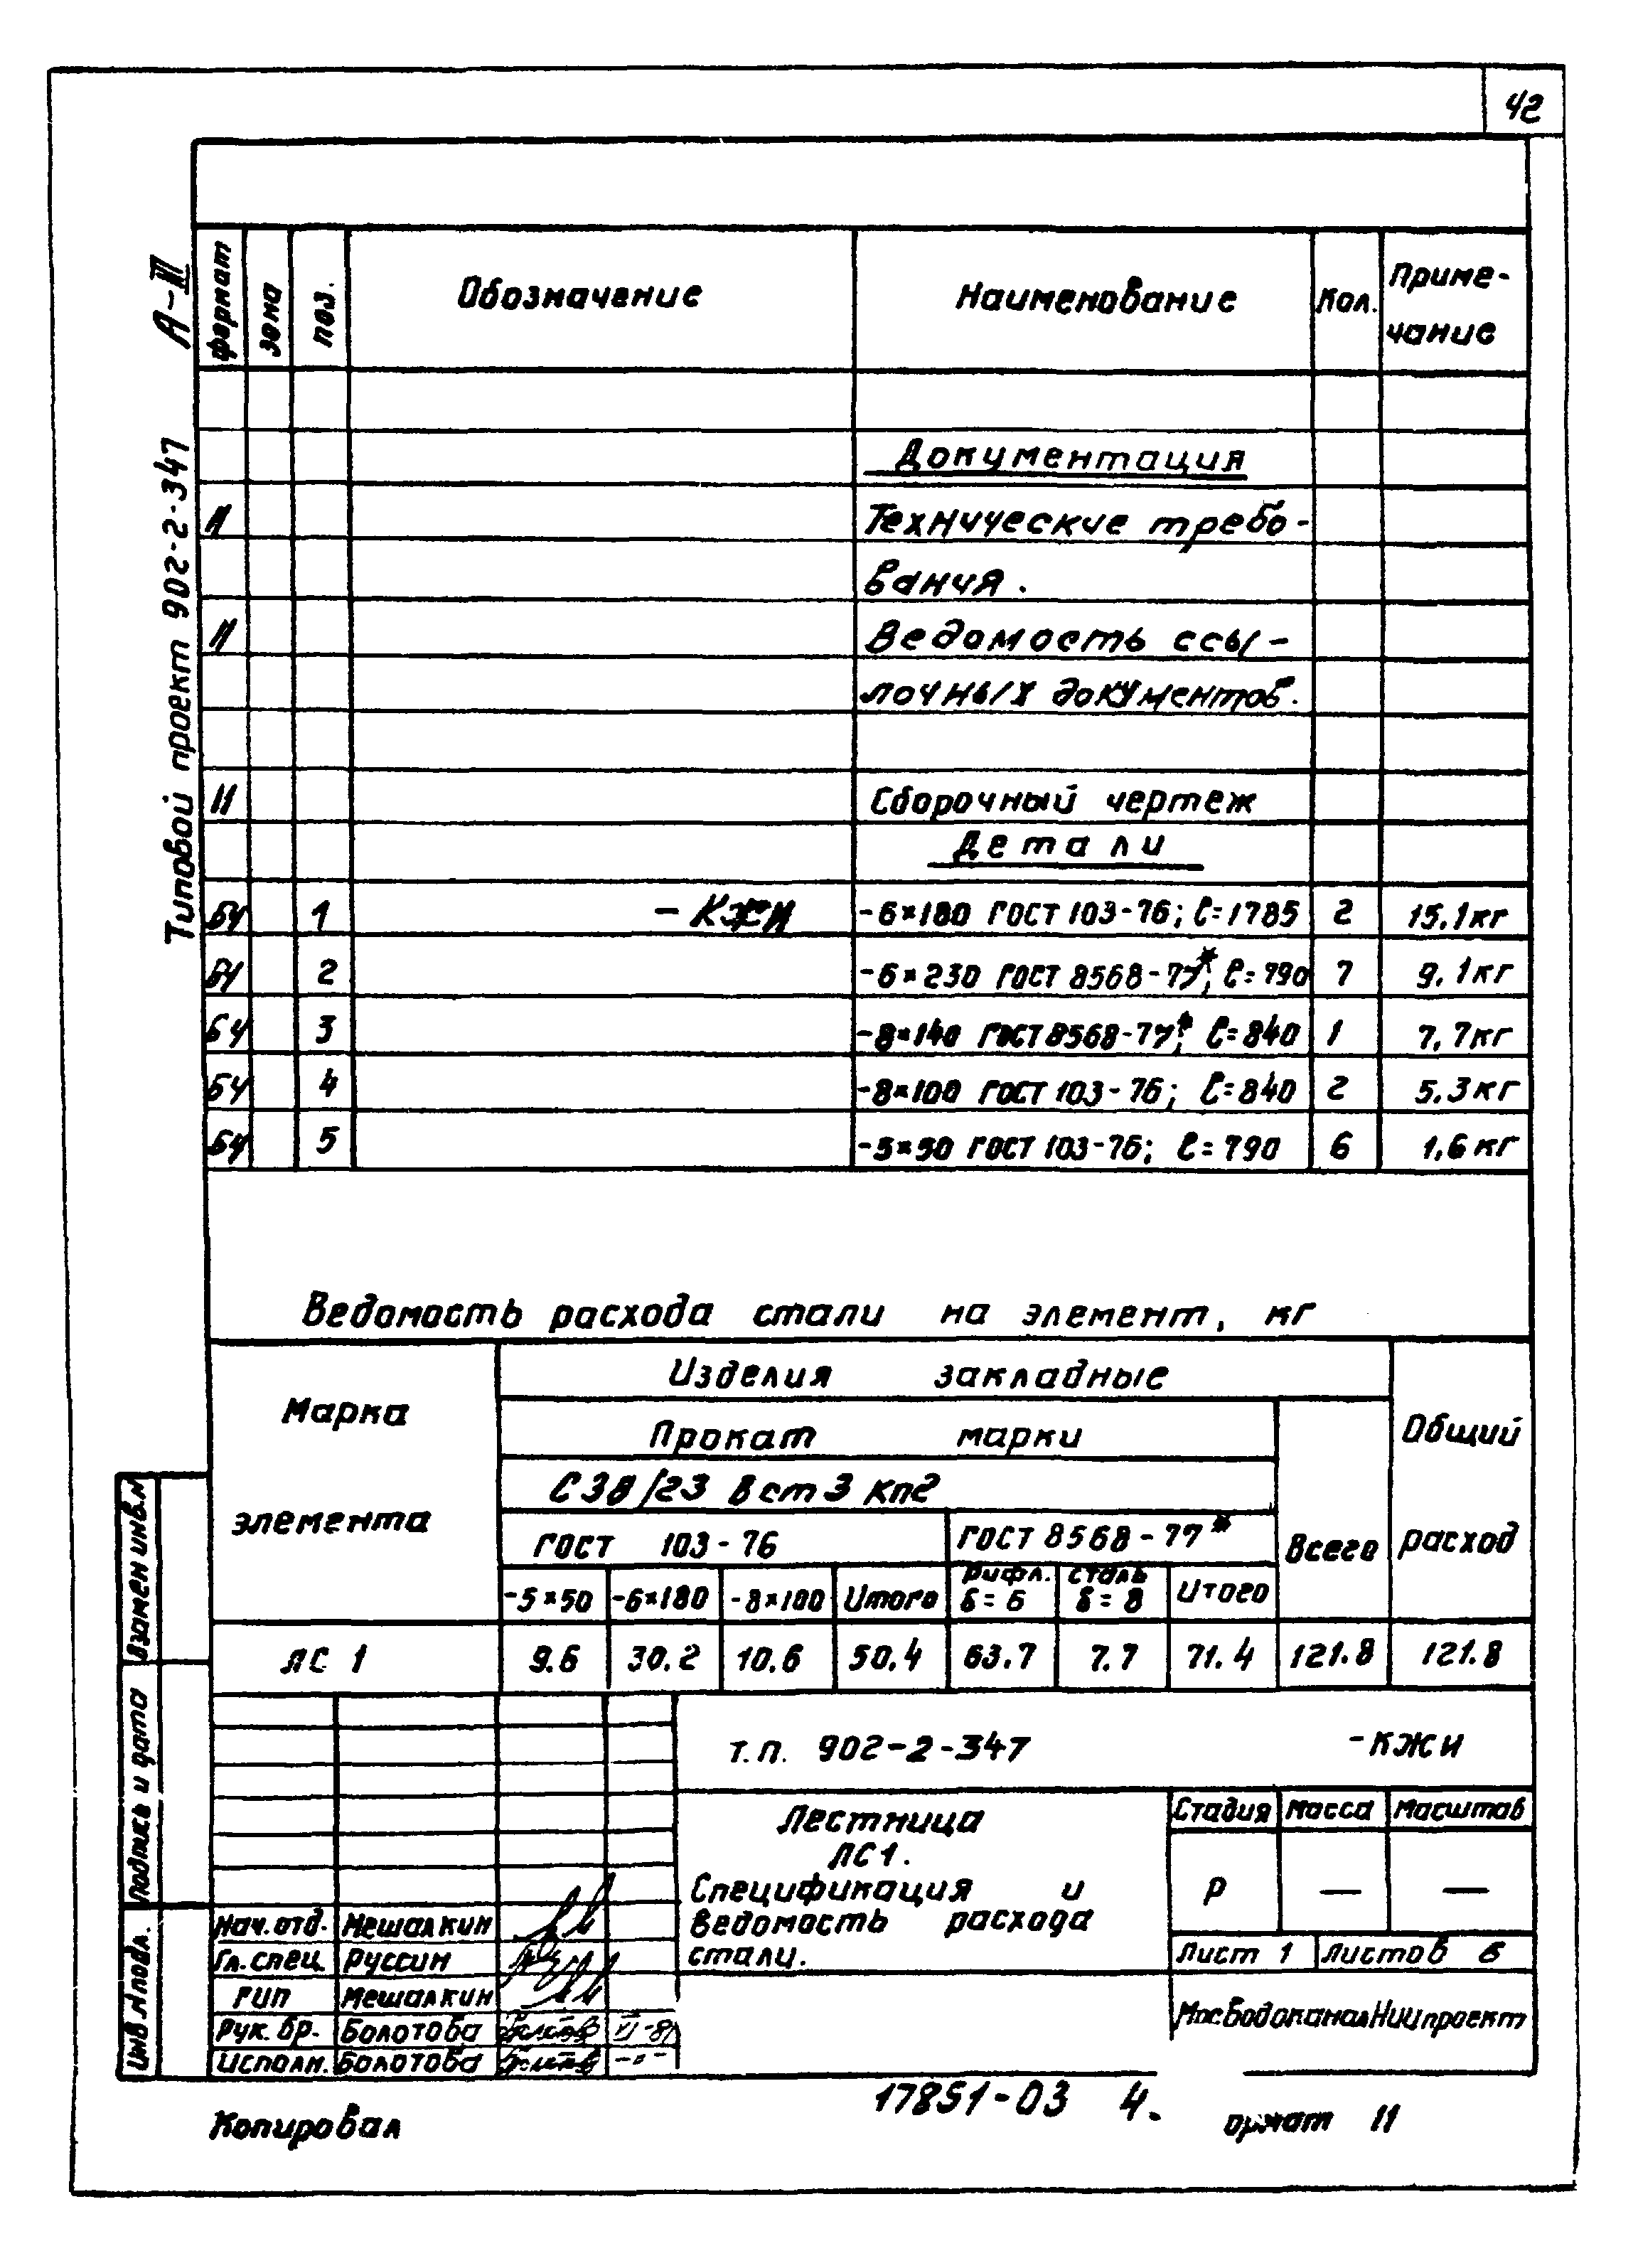 42
А-III
Типовой проект 902-2-347
формат зона поз. Обозначение Наименование Кол. Приме-
чание
Документация
11 Технические требо-
вания.
11 Ведомость ссы-
лочных документов.
11 Сборочный чертеж
Детали
БЧ 1 -КЖИ -6×180 ГОСТ 103-76; ℓ=1785 2 15,1кг
БЧ 2 -6×230 ГОСТ 8568-77*; ℓ=790 7 9,1кг
БЧ 3 -8×140 ГОСТ 8568-77*; ℓ=840 1 7,7кг
БЧ 4 -8×100 ГОСТ 103-76; ℓ=840 2 5,3кг
БЧ 5 -5×50 ГОСТ 103-76; ℓ=790 6 1,6кг
Ведомость расхода стали на элемент, кг
Марка
элемента
Изделия закладные
Прокат марки
С38/23 Вст3кп2
ГОСТ 103-76 ГОСТ 8568-77*
Всего
Общий
расход
Рифл. сталь
-5×50 -6×180 -8×100 Итого δ=6 δ=8 Итого
ЛС 1 9.6 30.2 10.6 50.4 63.7 7.7 71.4 121.8 121.8
т.п. 902-2-347 -КЖИ
Лестница
ЛС1.
Спецификация и
ведомость расхода
стали.
Стадия Масса Масштаб
Р — —
Лист 1 Листов
МосводоканалНИИпроект
Нач.отд. Мешалкин
Гл.спец. Руссин
ГИП Мешалкин
Рук.бр. Болотова
Исполн. Болотова
Взамен инв.N
Подпись и дата
Инв.N подл.
Копировал
17851-03 4.
ормат 11